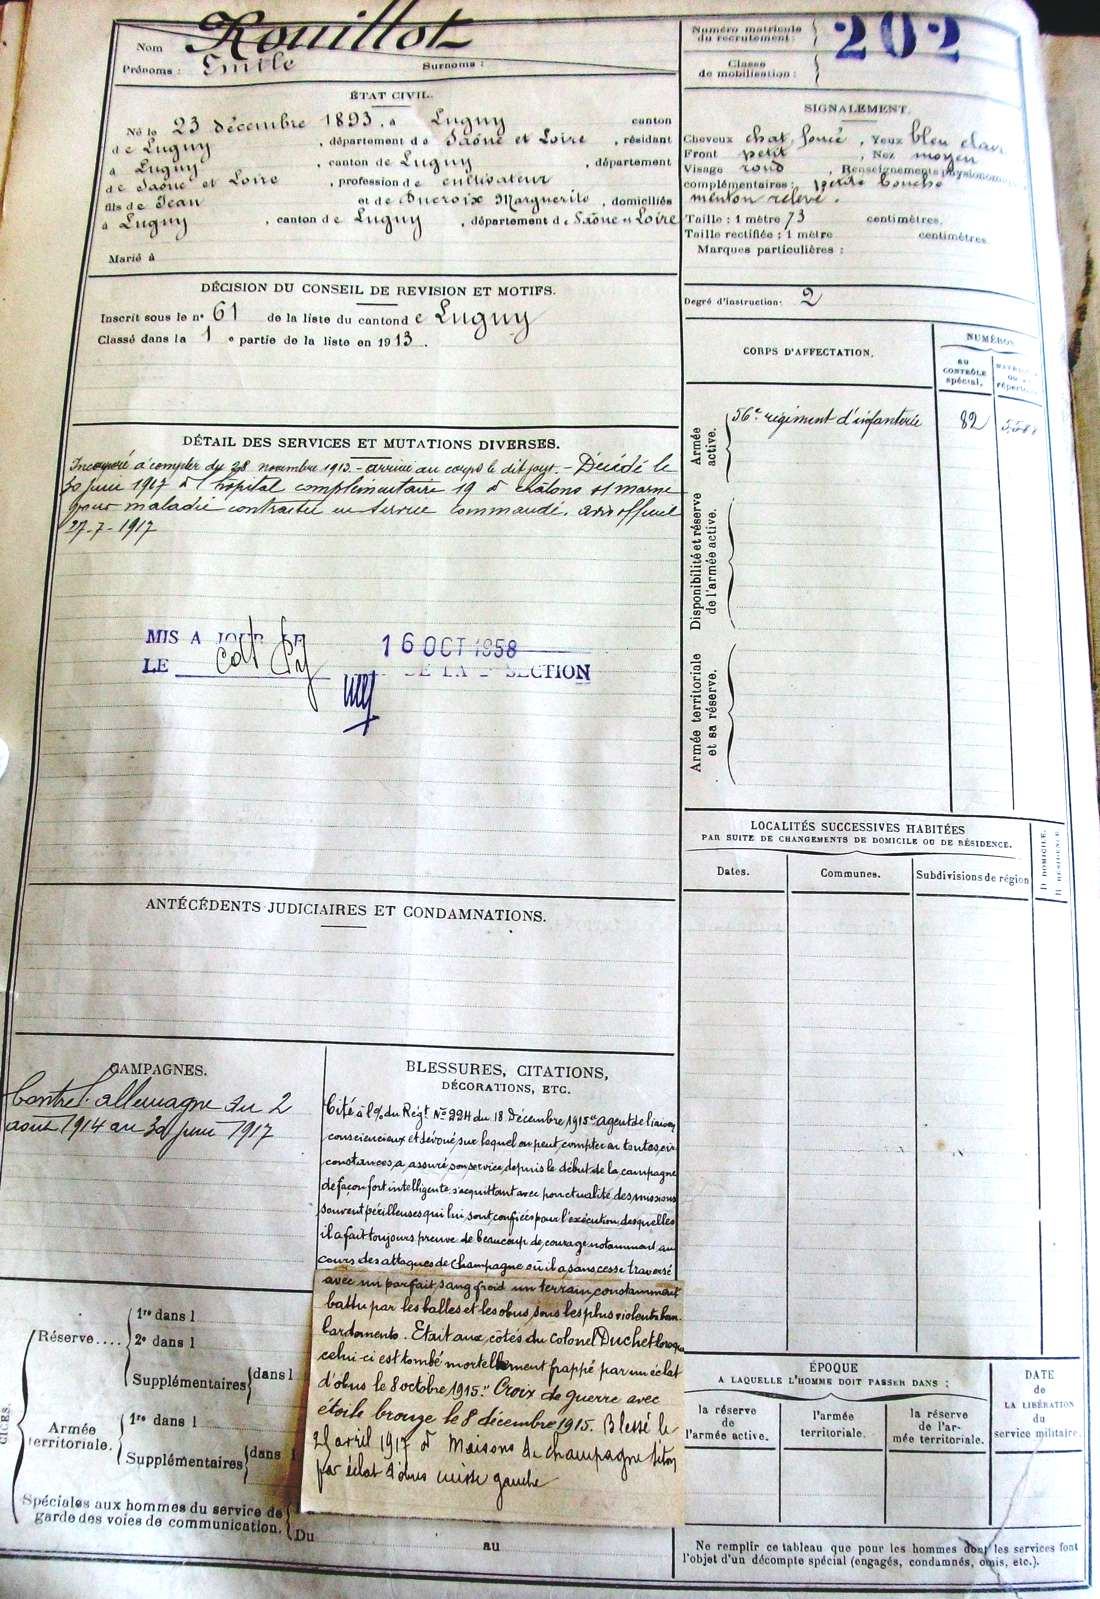 Nom Rouillot
Prénoms : Emile Surnoms :
Numéro matricule
du recrutement : 202
Classe
de mobilisation :
ÉTAT CIVIL.
Né le 23 décembre 1893, à Lugny canton
de Lugny, département de Saône et Loire, résidant
à Lugny, canton de Lugny, département
de Saône et Loire, profession de cultivateur
fils de Jean et de Ducroix Marguerite, domiciliés
à Lugny, canton de Lugny, département de Saône et Loire
Marié à
SIGNALEMENT.
Cheveux chat. foncé, Yeux bleu clair
Front petit, Nez moyen
Visage rond, Renseignements physionomi
complémentaires : petite bouche
menton relevé.
Taille : 1 mètre 73 centimètres.
Taille rectifiée : 1 mètre centimètres.
Marques particulières :
Degré d'instruction : 2
DÉCISION DU CONSEIL DE REVISION ET MOTIFS.
Inscrit sous le n° 61 de la liste du canton de Lugny
Classé dans la 1e partie de la liste en 1913.
CORPS D'AFFECTATION.
NUMÉROS
AU
CONTRÔLE
spécial.
Armée
active.
56e régiment d'infanterie 82
Disponibilité et réserve
de l'armée active.
Armée territoriale
et sa réserve.
DÉTAIL DES SERVICES ET MUTATIONS DIVERSES.
Incorporé à compter du 28 novembre 1913 - arrivé au corps le dit jour. - Décédé le
30 juin 1917 à l'hôpital complémentaire 19 à Châlons s/ marne
pour maladie contractée en service commandé. avis officiel
27-7-1917
MIS A JOUR LE 16 OCT 1958
LE DE LA SECTION
LOCALITÉS SUCCESSIVES HABITÉES
PAR SUITE DE CHANGEMENTS DE DOMICILE OU DE RÉSIDENCE.
Dates. Communes. Subdivisions de région
D DOMICILE.
R RESIDENCE
ANTÉCÉDENTS JUDICIAIRES ET CONDAMNATIONS.
CAMPAGNES.
Contre l'allemagne du 2
août 1914 au 30 juin 1917
BLESSURES, CITATIONS,
DÉCORATIONS, ETC.
Cité à l'o/ du Régt No 224 du 18 Décembre 1915 "agent de liaison
consciencieux et dévoué, sur lequel on peut compter en toutes cir
constances, a assuré son service depuis le début de la campagne
de façon fort intelligente s'acquittant avec ponctualité des missions
souvent périlleuses qui lui sont confiées pour l'exécution desquelles
il a fait toujours preuve de beaucoup de courage notamment au
cours des attaques de Champagne où il a sans cesse traversé
avec un parfait sang froid un terrain constamment
battu par les balles et les obus, sous les plus violents bom
bardements. Etait aux côtés du Colonel Duchet lorsque
celui-ci est tombé mortellement frappé par un éclat
d'obus le 8 octobre 1915." Croix de guerre avec
etoile bronze le 8 décembre 1915. Blessé le
avril 1917 à Maisons de champagne
par éclat d'obus cuisse gauche
Réserve....
1re dans l
2e dans l
Supplémentaires dans l
Armée
territoriale.
1re dans l
Supplémentaires dans l
Spéciales aux hommes du service de
garde des voies de communication. Du au
ÉPOQUE
A LAQUELLE L'HOMME DOIT PASSER DANS :
la réserve
de
l'armée active.
l'armée
territoriale.
la réserve
de l'ar-
mée territoriale.
DATE
de
LA LIBÉRATION
du
service militaire.
Ne remplir ce tableau que pour les hommes dont les services font
l'objet d'un décompte spécial (engagés, condamnés, omis, etc.).